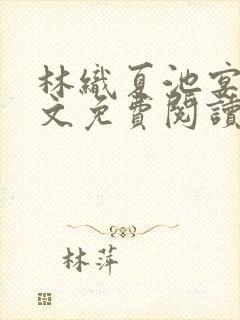 林織夏池宴
文免費閱讀
林萍